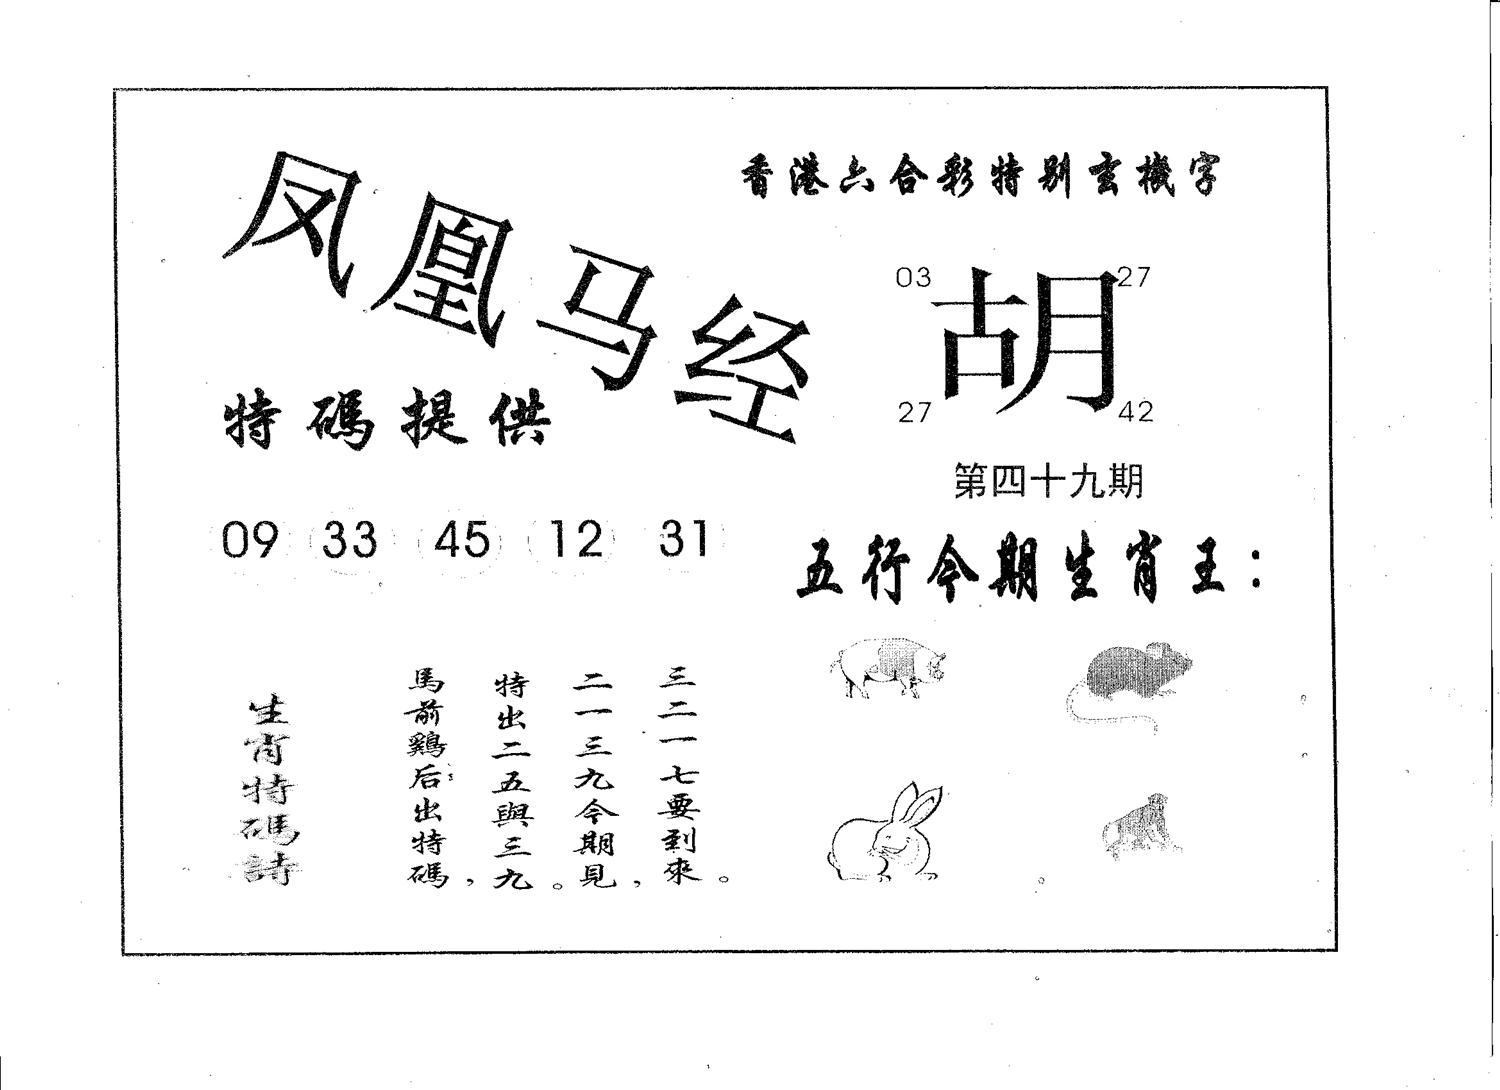 凤凰马经
香港六合彩特别玄機字
03 27
胡
27 42
特碼提供
第四十九期
09 33 45 12 31
五行今期生肖王：
生肖特碼詩
馬前鷄后出特碼，
特出二五與三九。
二一三九今期見，
三二一七要到來。